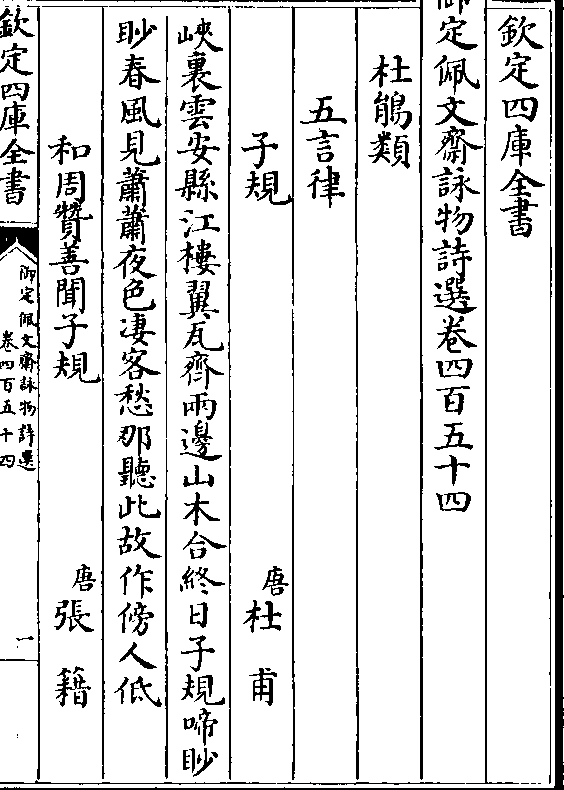 欽定四庫全書
御定佩文齋詠物詩選卷四百五十四
杜鵑類
五言律
子規 唐 杜甫
峽裏雲安縣江樓翼瓦齊兩邊山木合終日子規啼眇
眇春風見蕭蕭夜色凄客愁那聽此故作傍人低
和周贊善聞子規 唐 張籍
欽定四庫全書
御定佩文齋詠物詩選
卷四百五十四
一